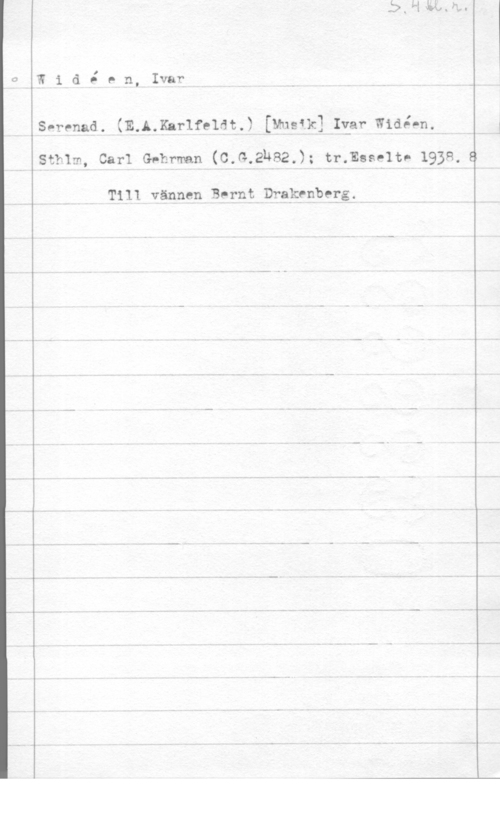 S. 4 bl. r.
W i d é e n, Ivar
Serenad. (E.A.Karlfeldt.) [Musik] Ivar Widéen.
Sthlm, Carl Gehrman (C.G.2482.); tr.Esselte 1938. 8
Till vännen Bernt Drakenberg.